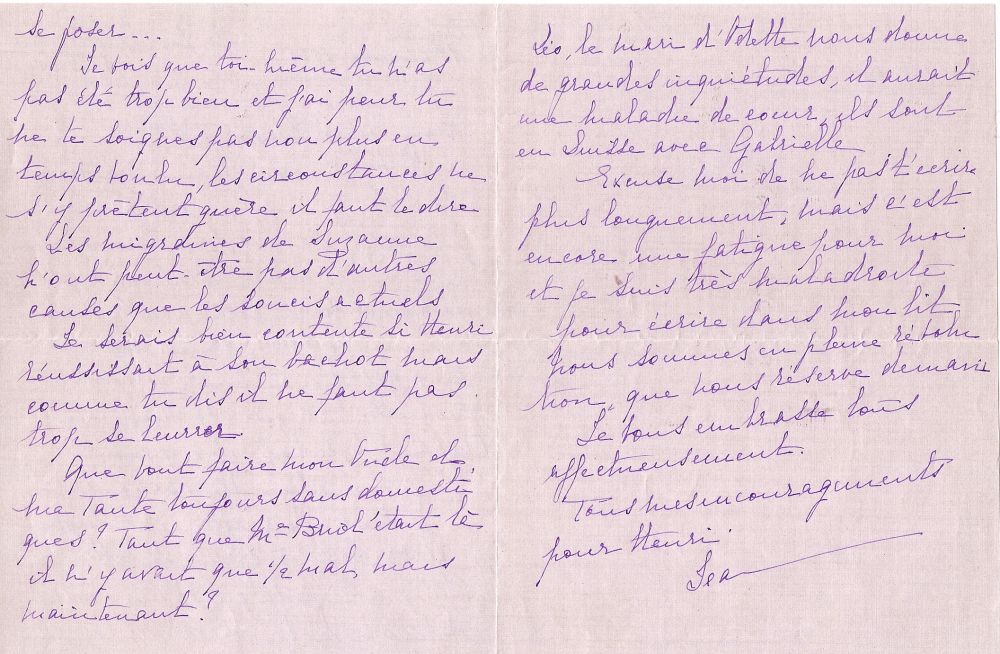 se poser...
Je vois que toi-même tu n'as
pas été trop bien et j'ai peur tu
ne te soignes pas non plus en
temps voulu, les circonstances ne
s'y prêtent guère il faut le dire
Les migraines de Suzanne
n'ont peut-être pas d'autres
causes que les soucis actuels
Je serais bien contente si Henri
réussissait à son bachot mais
comme tu dis il ne faut pas
trop se leurrer
Que vont faire mon Oncle et
ma Tante toujours sans domesti
ques? Tant que Me était là
il n'y avait que 1/2 mal, mais
maintenant?
Léo, le mari d'Odette nous donne
de grandes inquiétudes, il aurait
une maladie de coeur, ils sont
en Suisse avec Gabrielle
Excuse moi de ne pas t'écrire
plus longuement, mais c'est
encore une fatigue pour moi
et je suis très maladroite
pour écrire dans mon lit
nous sommes en pleine révolu
tion, que nous réserve demain
Je vous embrasse tous
affectueusement.
Tous mes encouragements
pour Henri